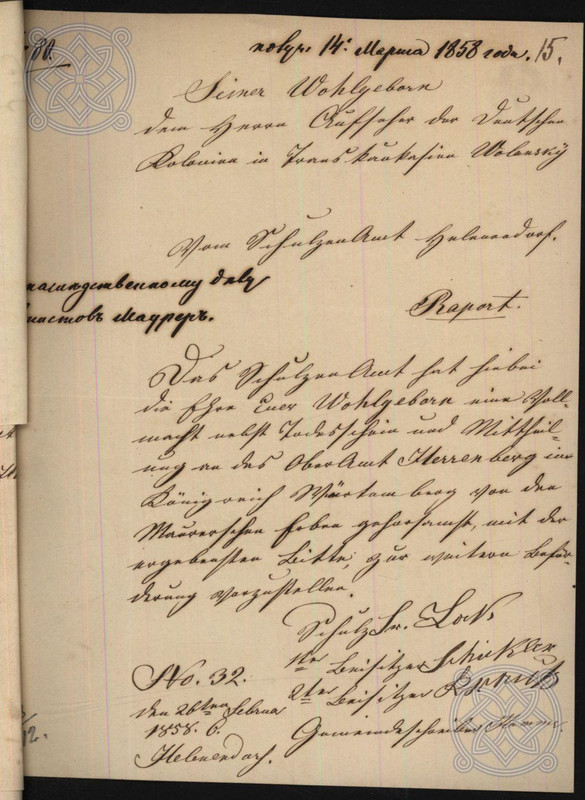 80.
получ. 14: Марта 1858 года. 15.
Seiner Wohlgeborn
dem Herrn Aufseher der Deutschen
Kolonien in Transkaukasien Wolansky
Vom SchulzenAmt Helenendorf.
наследственному делу
Маурер.
Raport.
Das SchulzenAmt hat hiebei
die Ehre Euer Wohlgeborn eine Voll-
macht nebst Todesschein und Mittheil-
ung an das OberAmt Herrenberg im
Königreich Würtemberg von den
Maurerschen Erben gehorsamst, mit der
ergebensten Bitte, zur weitern Beför-
derung vorzustellen.
Schulz Fr.
1ter Beisitzer
2ter Beisitzer
Gemeindeschreiber
No. 32.
den 26ten Februa
1858.
Helenendorf.